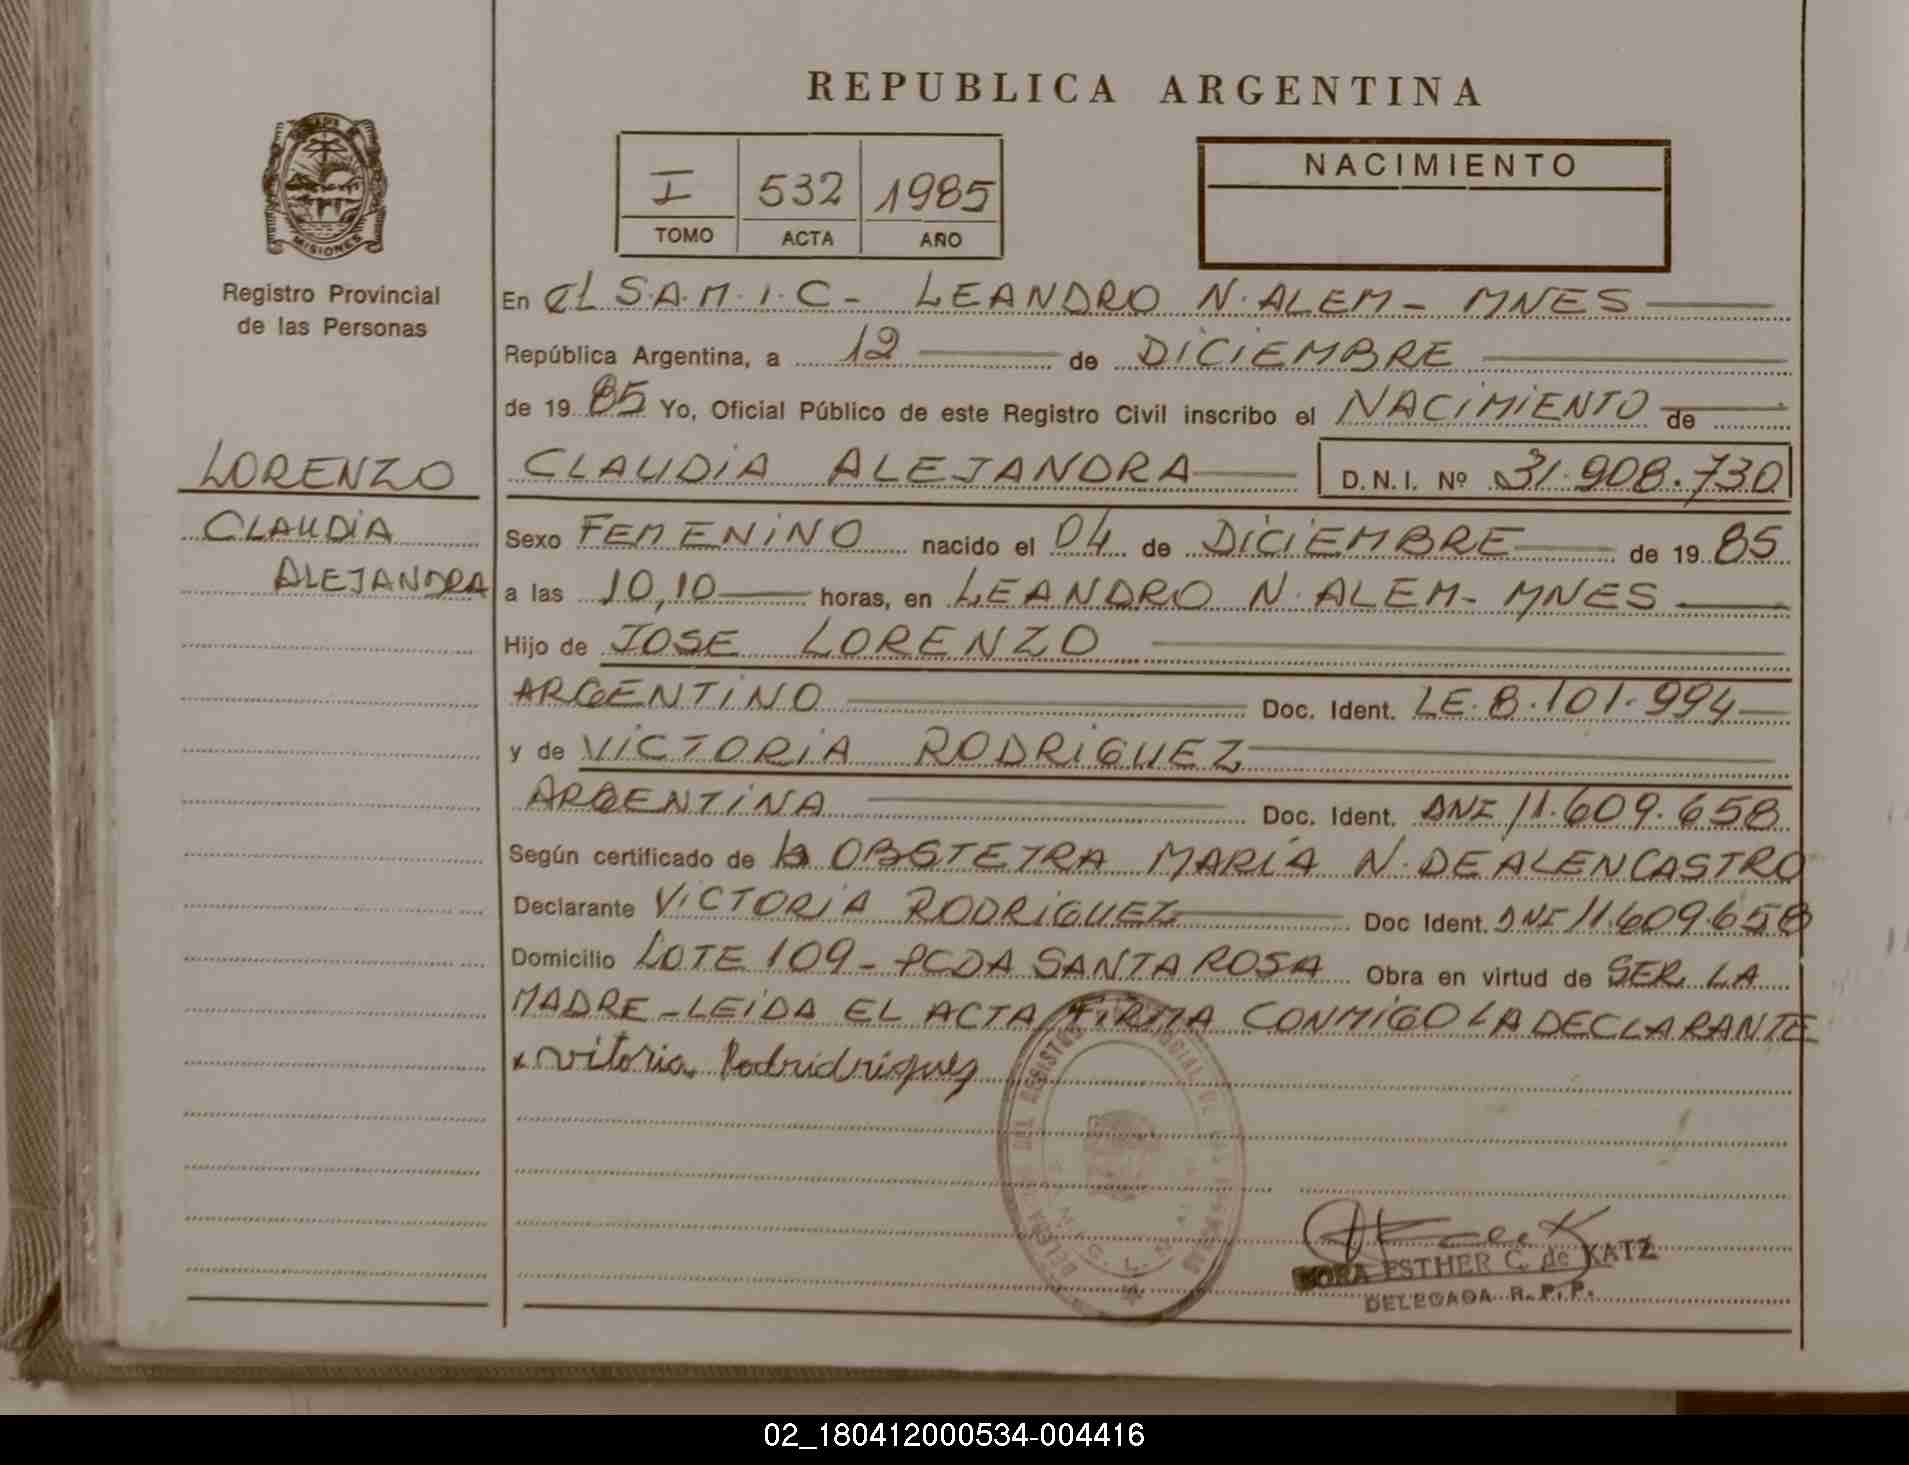 REPUBLICA ARGENTINA
MISIONES
Registro Provincial
de las Personas
I 532 1985
TOMO ACTA AÑO
NACIMIENTO
En EL S.A.M.I.C - LEANDRO N. ALEM - MNES
República Argentina, a 12 de DICIEMBRE
de 1985 Yo, Oficial Público de este Registro Civil inscribo el NACIMIENTO de
LORENZO
CLAUDIA ALEJANDRA D.N.I. Nº 31.908.730
CLAUDIA
ALEJANDRA
Sexo FEMENINO nacido el 04 de DICIEMBRE de 1985
a las 10,10 horas, en LEANDRO N. ALEM - MNES
Hijo de JOSE LORENZO
ARGENTINO Doc. Ident. LE. 8.101.994
y de VICTORIA RODRIGUEZ
ARGENTINA Doc. Ident. DNI 11.609.658
Según certificado de la OBSTETRA MARÍA N. DE ALENCASTRO
Declarante VICTORIA RODRIGUEZ Doc Ident. DNI 11.609.658
Domicilio LOTE 109 - PCDA SANTA ROSA Obra en virtud de SER LA
MADRE - LEIDA EL ACTA FIRMA CONMIGO LA DECLARANTE
x vitoria Rodridriguez
ESTHER C. de KATZ
DELEGADA R.P.P.
02_180412000534-004416